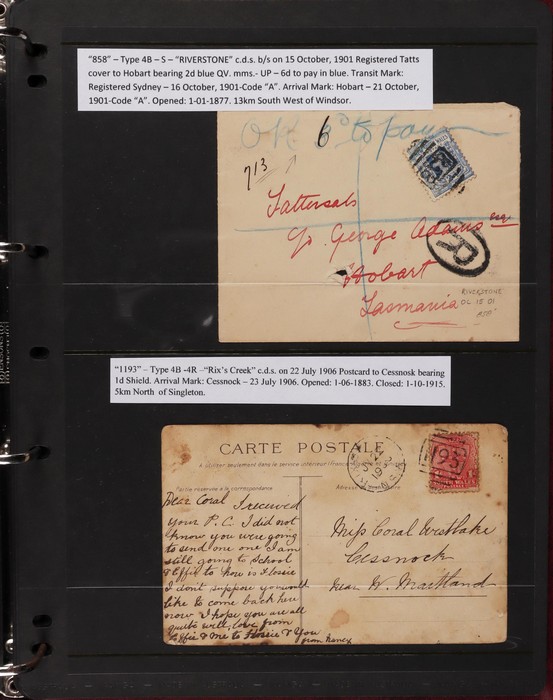 "858" – Type 4B – S – "RIVERSTONE" c.d.s. b/s on 15 October, 1901 Registered Tatts
cover to Hobart bearing 2d blue QV. mms.- UP – 6d to pay in blue. Transit Mark:
Registered Sydney – 16 October, 1901-Code "A". Arrival Mark: Hobart – 21 October,
1901-Code "A". Opened: 1-01-1877. 13km South West of Windsor.
OK to pay
6
713
Tattersals
c/o George Adams esqr
R
Hobart
Tasmania
RIVERSTONE
OC 15 01
858
"1193" – Type 4B -4R –"Rix's Creek" c.d.s. on 22 July 1906 Postcard to Cessnosk bearing
1d Shield. Arrival Mark: Cessnock – 23 July 1906. Opened: 1-06-1883. Closed: 1-10-1915.
5km North of Singleton.
CARTE POSTALE
A utiliser seulement dans le service intérieur (France
Partie réservée à la correspondance
Dear Coral I received
your P.C. I did not
know you were going
to send one one I am
still going to School
& Effie to How is Flossie
I don't suppose you would
like to come back here
now I hope you are all
quite well, love from
Effie & Me to Flossie & You
from
Miss Coral Westlake
Cessnock
Near W. Maitland
N.S.W